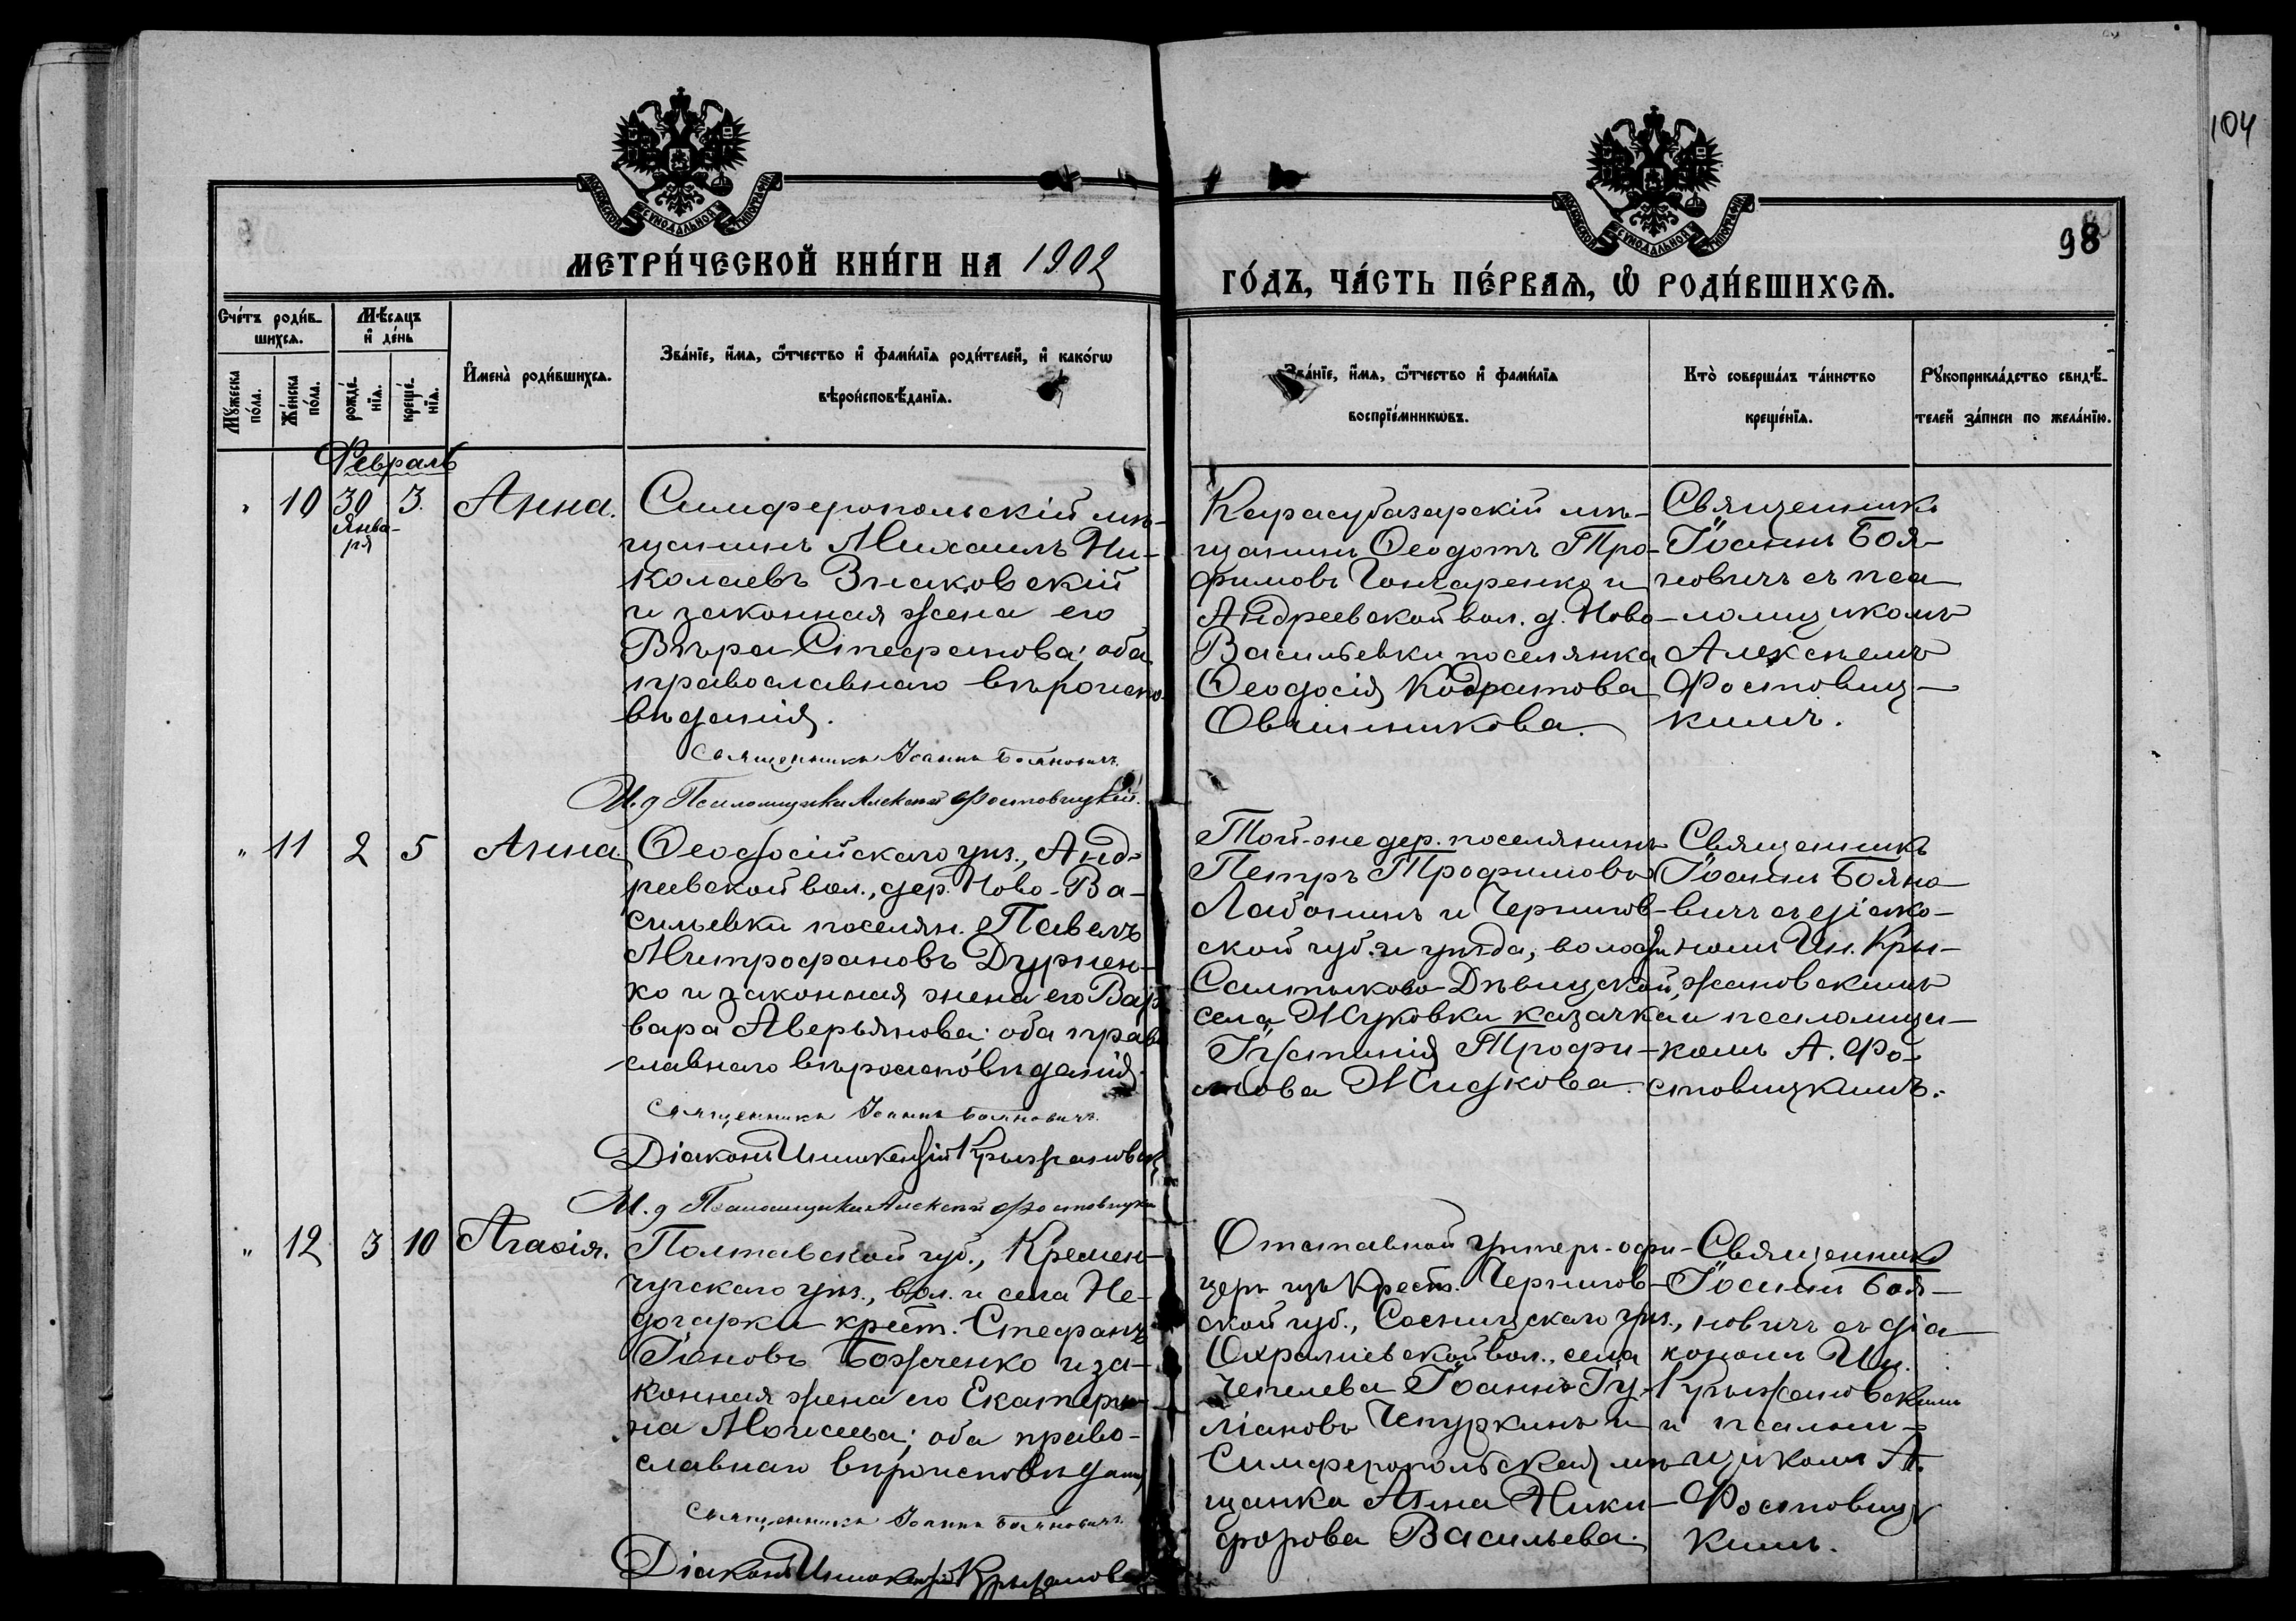 104
МОСКОВСКОЙ СѴНОДАЛЬНОЙ ТИПОГРАФІИ
МОСКОВСКОЙ СѴНОДАЛЬНОЙ ТИПОГРАФІИ
98
МЕТРИ́ЧЕСКОЙ КНИ́ГИ НА 1902
ГО́ДЪ, ЧА́СТЬ ПЕ́РВАѦ, Ѡ РОДИ́ВШИХСѦ.
Сче́тъ роди́в-
шихсѧ.
Мѣ́сяцъ
и де́нь
Мꙋ́жеска
по́ла.
Же́нска
по́ла.
рожде́-
нїѧ.
креще́-
нїѧ.
Имена̀ роди́вшихсѧ.
Зва́нїе, и́мѧ, ѻ́тчество и фами́лїѧ роди́телей, и како́гѡ
вѣроисповѣ́данїѧ.
Зва́нїе, и́мѧ, ѻ́тчество и фами́лїѧ
воспрїе́мникѡвъ.
Кто̀ соверша́лъ та́инство
креще́нїѧ.
Рꙋкоприкла́дство свидѣ́-
телей за́писи по жела́нїю.
Февраль
" 10 30 3. Анна.
Янва-
ря
Симферопольскій мѣ-
щанинъ Михаилъ Ни-
колаевъ Знаковскій
и законная жена его
Вѣра Стефанова; оба
православнаго вѣроиспо-
вѣданія.
Священникъ Іоаннъ Бояновичъ.
И. д Псаломщика Алексѣй Фостовицкій.
Карасубазарскій мѣ-
щанинъ Ѳеодотъ Тро-
фимовъ Гончаренко и
Андреевской вол. д. Ново-
Васильевки поселянка
Ѳеодосія Кодратова
Овчинникова.
Священникъ
Іоаннъ Боя-
новичъ съ пса
ломщикомъ
Алексѣемъ
Фостовиц-
кимъ.
" 11 2 5 Анна.
Ѳеодосійскаго уѣз., Анд-
реевской вол., дер. Ново-Ва-
сильевки поселян. Павелъ
Митрофановъ Дурнен-
ко и законная жена его Вар
вара Аверьянова; оба право
славнаго вѣроисповѣданія.
Священникъ Іоаннъ Бояновичъ.
Діаконъ Иннокентій Крыжановск
И. д Псаломщика Алексѣй Фостовицкій
Той-же дер. поселянинъ
Петръ Трофимовъ
Лабонинъ и Чернигов-
ской губ. и уѣзда, волости
Салтыково-Дѣвицкой,
села Жуковки казачка
Іустинія Трофи-
мова Жидкова.
Священникъ
Іоаннъ Бояно-
вичъ съ діако-
номъ Ин. Кры-
жановскимъ
и псаломщи-
комъ А. Фо-
стовицкимъ.
" 12 3 10 Агаѳія.
Полтавской губ., Кремен-
чугскаго уѣз., вол. и села Не-
догарки крест. Стефанъ
Іоновъ Божченко и за-
конная жена его Екатери-
на Моисеева; оба право-
славнаго вѣроисповѣданія
Священникъ Іоаннъ Бояновичъ.
Діаконъ Иннокентій Крыжанов
Отставной унтеръ-офи-
церъ изъ крест. Чернигов-
ской губ., Сосницкаго уѣз.,
Охрамиевской вол., села
Чепелева Іоаннъ Іу-
ліановъ Чепуркинъ и
Симферопольская мѣ
щанка Анна Ники-
форова Васильева.
Священникъ
Іоаннъ Боя-
новичъ съ діа
кономъ Ин.
Крыжановскимъ
и псалом-
щикомъ А.
Фостовиц
кимъ.